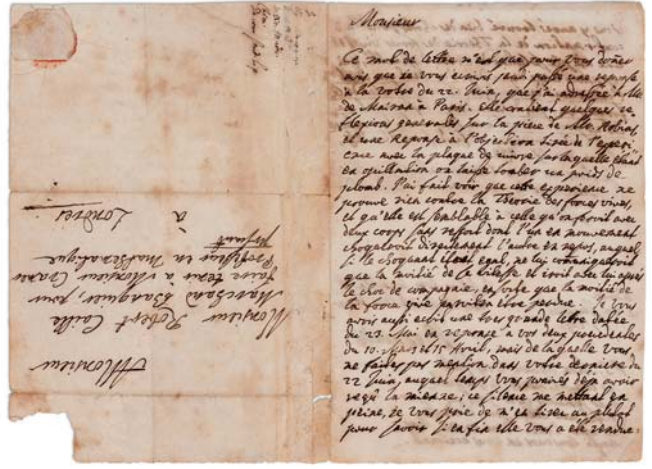 Monsieur
Ce mot de lettre n'est que pour vous doner
avis que je vous ecrivis jeudi passé une reponse
à la votre du 22. Juin, que j'ai adressée à Mr.
de Mairan à Paris. elle contient quelques re-
flexions generales sur la piece de Mr. Robins,
et une Reponse à l'objection tirée de l'experi-
ence avec la plaque de cuivre sur laquelle étant
en oscillation on laisse tomber un poids de
plomb. J'ai fait voir que cette experience ne
prouve rien contre la Theorie des forces vives,
et qu'elle est semblable à celle qu'on feroit avec
deux corps sans ressort dont l'un en mouvement
choqueroit directement l'autre en repos, auquel
si le choquant étoit egal, ne lui communiqueroit
que la moitié de la vitesse et iroit avec lui après
le choc de compagnie, en sorte que la moitié de
la force vive en perdue. Je vous
avois aussi ecrit une tres grande letre datée
du 23. Mai en reponse à vos deux precedentes
du 10. Mars et 15 Avril, mais de laquelle vous
ne faites pas mention dans votre derniere du
22 Juin, auquel temps vous pouviés déja avoir
reçu la mienne; ce silence me mettant en
peine, je vous prie de m'en tirer au plutot
pour savoir si enfin elle vous a été rendue.
A Monsieur
Monsieur Robert Caille
Marchand Banquier, pour
faire tenir à Monsieur Cramer
Professeur en Mathematique
présent
à
Londres